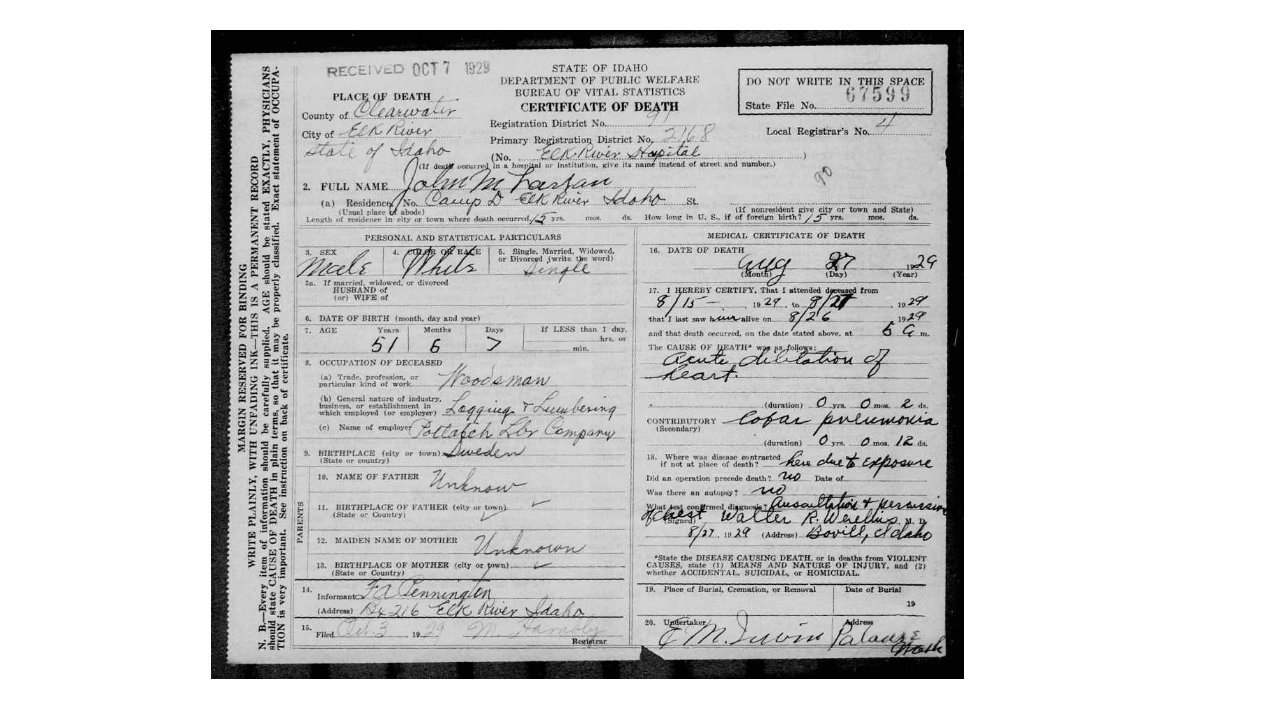 MARGIN RESERVED FOR BINDING
WRITE PLAINLY, WITH UNFADING INK—THIS IS A PERMANENT RECORD
N. B.—Every item of information should be carefully supplied. AGE should be stated EXACTLY, PHYSICIANS
should state CAUSE OF DEATH in plain terms, so that it may be properly classified. Exact statement of OCCUPA-
TION is very important. See instruction on back of certificate.
RECEIVED OCT 7 1929
STATE OF IDAHO
DEPARTMENT OF PUBLIC WELFARE
BUREAU OF VITAL STATISTICS
CERTIFICATE OF DEATH
DO NOT WRITE IN THIS SPACE
State File No. 67599
PLACE OF DEATH
County of Clearwater
City of Elk River
State of Idaho
Registration District No. 91
Primary Registration District No. 2168
Local Registrar's No. 4
(No. Elk River Hospital )
(If death occurred in a hospital or institution, give its name instead of street and number.)
90
2. FULL NAME John M
(a) Residence, No. Camp D Elk River Idaho St.
(Usual place of abode)
(If nonresident give city or town and State)
Length of residence in city or town where death occurred 15 yrs. mos. ds. How long in U. S., if of foreign birth? 15 yrs. mos. ds.
PERSONAL AND STATISTICAL PARTICULARS
3. SEX
Male
4. COLOR OR RACE
White
5. Single, Married, Widowed,
or Divorced (write the word)
Single
5a. If married, widowed, or divorced
HUSBAND of
(or) WIFE of
6. DATE OF BIRTH (month, day and year)
7. AGE Years Months Days If LESS than 1 day,
hrs. or
min.
51 6 7
8. OCCUPATION OF DECEASED
(a) Trade, profession, or
particular kind of work Woodsman
(b) General nature of industry,
business, or establishment in
which employed (or employer) Logging & Lumbering
(c) Name of employer Potlatch Lbr Company
9. BIRTHPLACE (city or town) Sweden
(State or country)
PARENTS
10. NAME OF FATHER Unknow
11. BIRTHPLACE OF FATHER (city or town)
(State or Country)
12. MAIDEN NAME OF MOTHER Unknown
13. BIRTHPLACE OF MOTHER (city or town)
(State or Country)
14.
Informant F A Pennington
(Address) Bx 216 Elk River Idaho
15.
Filed Oct 3 1929
Registrar
MEDICAL CERTIFICATE OF DEATH
16. DATE OF DEATH
Aug 27 1929
(Month) (Day) (Year)
17. I HEREBY CERTIFY, That I attended deceased from
8/15 — 1929 to 8/27 1929
that I last saw him alive on 8/26 1929
and that death occurred, on the date stated above, at 5 a m.
The CAUSE OF DEATH* was as follows:
Acute dilitation of
heart.
(duration) 0 yrs. 0 mos. 2 ds.
CONTRIBUTORY Lobar pneumonia
(Secondary)
(duration) 0 yrs. 0 mos. 12 ds.
18. Where was disease contracted
if not at place of death? here due to exposure
Did an operation precede death? no Date of
Was there an autopsy? no
What test confirmed diagnosis? Auscultation & percussion
of chest
(Signed) Walter R. M. D.
8/27, 1929 (Address) Bovill, Idaho
*State the DISEASE CAUSING DEATH, or in deaths from VIOLENT
CAUSES, state (1) MEANS AND NATURE OF INJURY, and (2)
whether ACCIDENTAL, SUICIDAL, or HOMICIDAL.
19. Place of Burial, Cremation, or Removal Date of Burial
19
20. Undertaker Address
E M. Irwin Palouse
Wash